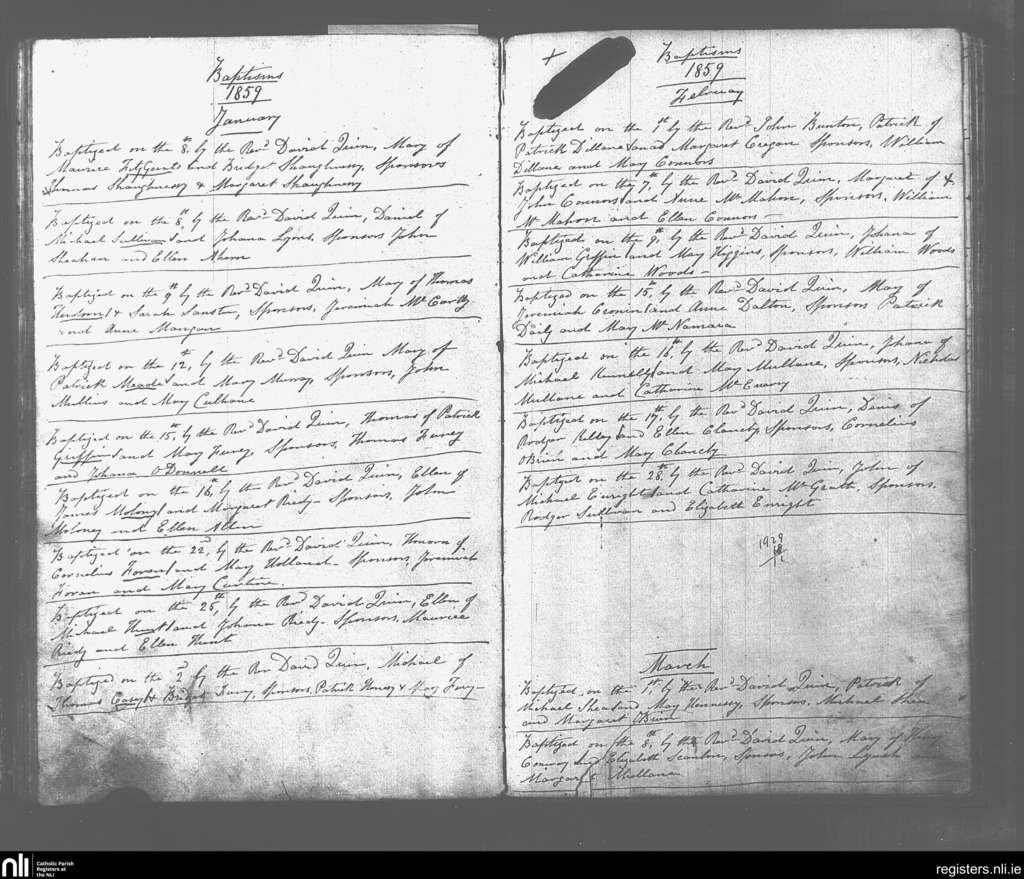 Baptisms
1859
January
Baptized on the 8th by the Revd David Quin, Mary of
Maurice FitzGerald and Bridget Shaughnessy, Sponsors
Shaughnessy & Margaret Shaughnessy
Baptized on the 8th by the Revd David Quin, Daniel of
Michael Sullivan and Johana Lyons, Sponsors John
Sheahan and Ellen Ahern
Baptized on the 9th by the Revd David Quin, Mary of Thomas
& Sarah Sponsors, Jeremiah McCarthy
and Anne Mangan
Baptized on the 12th, by the Revd David Quin Mary of
Patrick Meade and Mary Sponsors, John
Mullins and Mary Culhane
Baptized on the 15th, by the Revd David Quin, Thomas of Patrick
Griffin and Mary Sponsors, Thomas
and Johana O'Donnell
Baptized on the 16th, by the Revd David Quin, Ellen of
James Molony and Margaret Riedy - Sponsors, John
Moloney and Ellen Allen
Baptized on the 22d, by the Revd David Quin, Honora of
Cornelius Foran and Mary Holland - Sponsors, Jeremiah
Foran and Mary
Baptized on the 25th, by the Revd David Quin, Ellen of
Michael Hunt and Johana Riedy - Sponsors, Maurice
Riedy and Ellen Hunt
Baptized on the 2d by the Rev David Quin, Michael of
Thomas & Bridget Sponsors, Patrick & Mary
+
Baptisms
1859
February
Baptized on the 1st by the Revd John Bunton, Patrick of
Patrick Dillane and Margaret Cregan Sponsors, William
Dillane and Mary Connors
Baptized on the 7th, by the Revd David Quin, Margaret of +
John Connors and Anne McMahon, Sponsors, William
McMahon and Ellen Connors -
Baptized on the 9th, by the Revd David Quin, Johana of
William Griffin and Mary Higgins, Sponsors, William Woods
and Catharine Woods -
Baptized on the 15th, by the Revd David Quin, Mary of
Jeremiah Cronin and Anne Dalton, Sponsors Patrick
Daily and Mary McNamara
Baptized on the 16th, by the Revd David Quin, Johana of
Michael Kennelly and Mary Mullane, Sponsors,
Mullane and Catharine
Baptized on the 17th, by the Revd David Quin, Denis of
Rodger Kelley and Ellen Clanchy, Sponsors, Cornelius
O'Brien and Mary Clanchy
Baptized on the 28th, by the Revd David Quin, John of
Michael Enright and Catharine Sponsors,
Rodger Sullivan and Elizabeth Enright
1929
March
Baptized on the 1st, by the Revd David Quin, Patrick of
Michael Shea and Mary Hennessy, Sponsors, Michael Shea
and Margaret O'Brien
Baptized on the 8th, by the Revd David Quin, Mary of
Conway and Elizabeth Scanlon, Sponsors, John Lynch and
Margaret Mullane
nli
Catholic Parish
Registers at
the NLI
registers.nli.ie